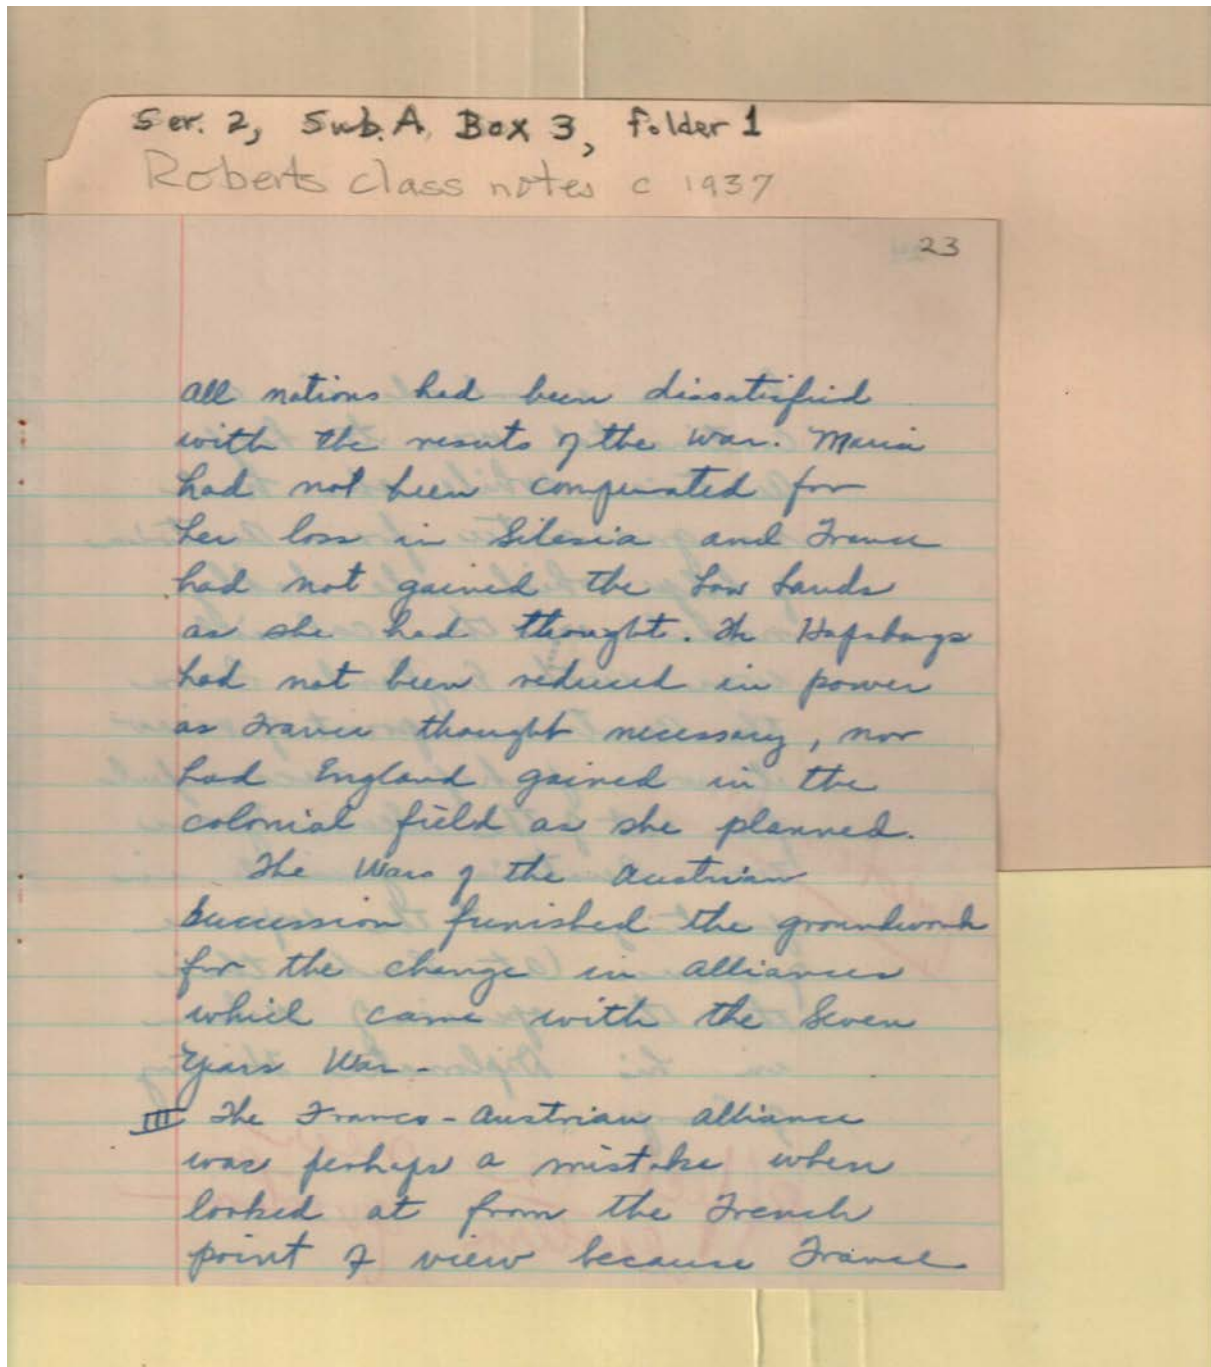 Ser. 2, Sub. A, Box 3, Folder 1
Roberts class notes c 1937
23
All nations had been dissatisfied
with the resuts of the war. Maria
had not been compensated for
her loss in Silesia and France
had not gained the Low Lands
as she had thought. The Hapsburgs
had not been reduced in power
as France thought necessary, nor
had England gained in the
colonial field as she planned.
The Wars of the Austrian
Succession furnished the groundwork
for the change in alliances
which came with the Seven
Years War -
III The Franco-Austrian alliance
was perhaps a mistake when
looked at from the French
point of view because France